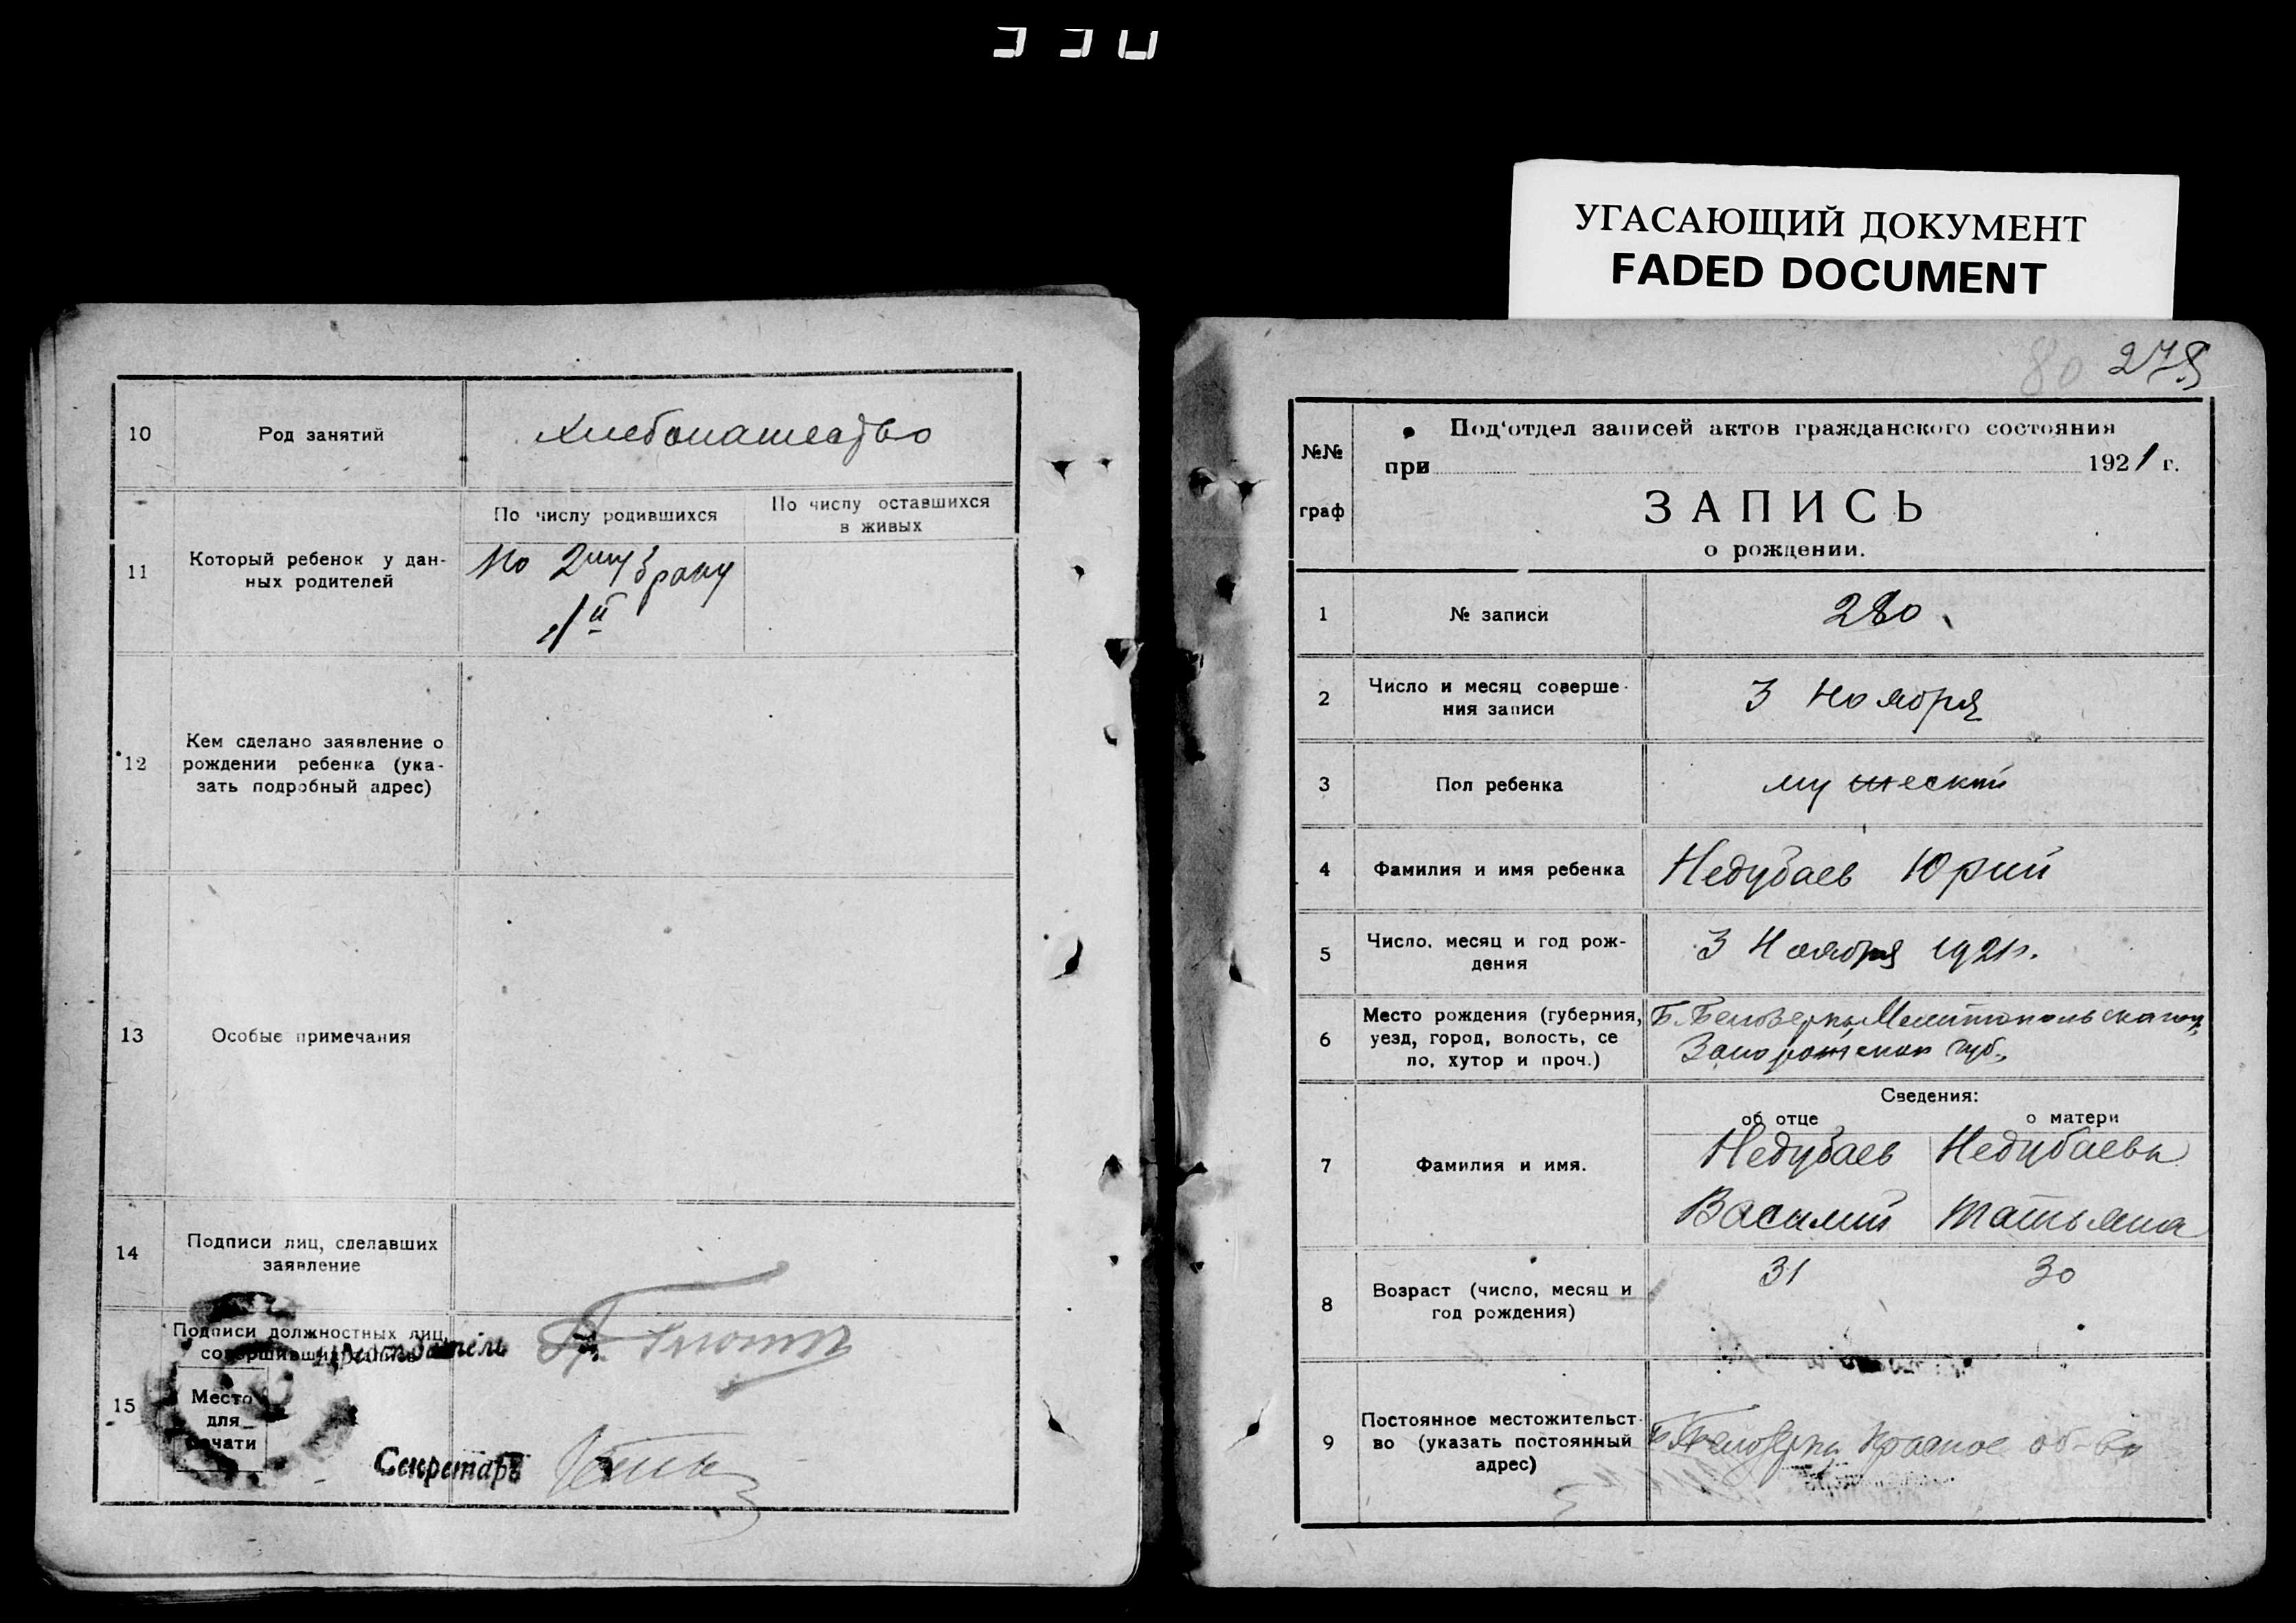 УГАСАЮЩИЙ ДОКУМЕНТ
FADED DOCUMENT
10
Род занятий
хлебопашество
11
Который ребенок у дан-
ных родителей
По числу родившихся
По числу оставшихся
в живых
По 2му браку
1й
12
Кем сделано заявление о
рождении ребенка (ука-
зать подробный адрес)
13
Особые примечания
14
Подписи лиц, сделавших
заявление
15
Подписи должностных лиц,
совершивших запись
Место
для
печати
Секретарь
80 278
№№
граф
Под'отдел записей актов гражданского состояния
при 1921 г.
ЗАПИСЬ
о рождении.
1
№ записи
280
2
Число и месяц соверше-
ния записи
3 Ноября
3
Пол ребенка
мужеский
4
Фамилия и имя ребенка
Недубаев Юрий
5
Число, месяц и год рож-
дения
3 Ноября 1921 г.
6
Место рождения (губерния,
уезд, город, волость, се
ло, хутор и проч.)
Б. Белозерка, Мелитопольскаго у.,
Запорожской губ.,
Сведения:
об отце
о матери
7
Фамилия и имя.
Недубаев Недубаева
Василий Татьяна
8
Возраст (число, месяц и
год рождения)
31 30
9
Постоянное местожительст-
во (указать постоянный
адрес)
Б. Белозерка, Красное об-во